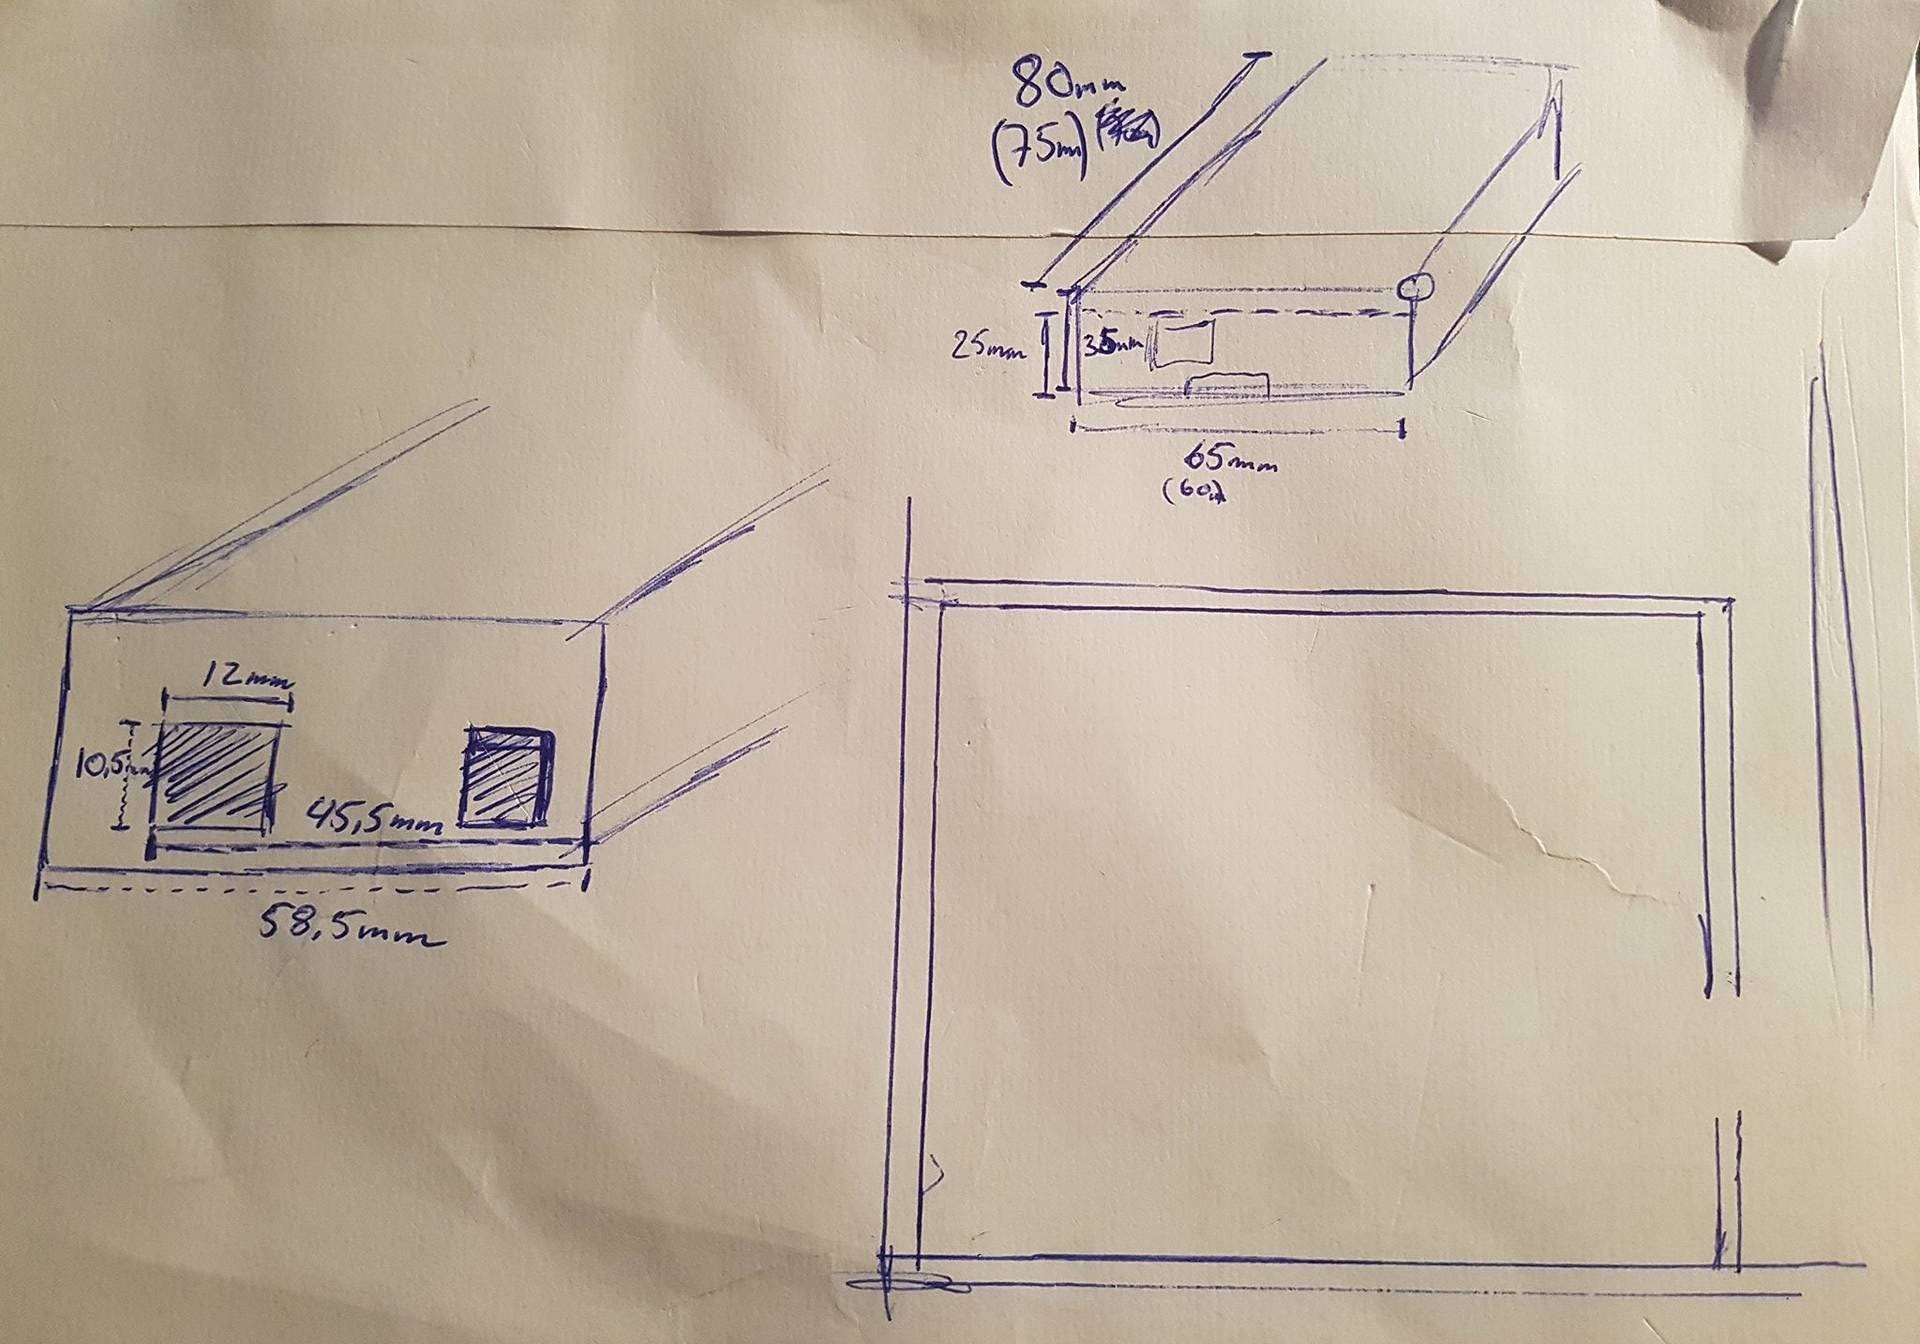 80mm
(75m)
25mm
35mm
65mm
12mm
10,5mm
45,5mm
58,5mm